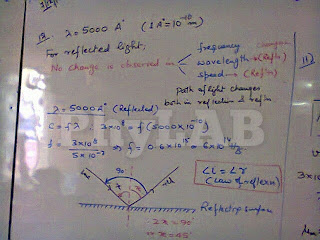 13. λ = 5000 A° (1 A° = 10⁻¹⁰ m)
For reflected light,
No change is observed in
frequency
wavelength → (Refrn)
speed → (Refrn)
Path of light changes
both in reflection & refrn
λ = 5000 A° (Reflected)
C = fλ 3×10⁸ = f (5000×10⁻¹⁰)
f = 3×10⁸ / 5×10⁻⁷ ⇒ f = 0.6×10¹⁵ = 6×10¹⁴ Hz
90
x x
∠i = ∠r
(Law of reflexn)
Reflecting surface
2x = 90
x = 45°
11)
3×10
PHYLAB